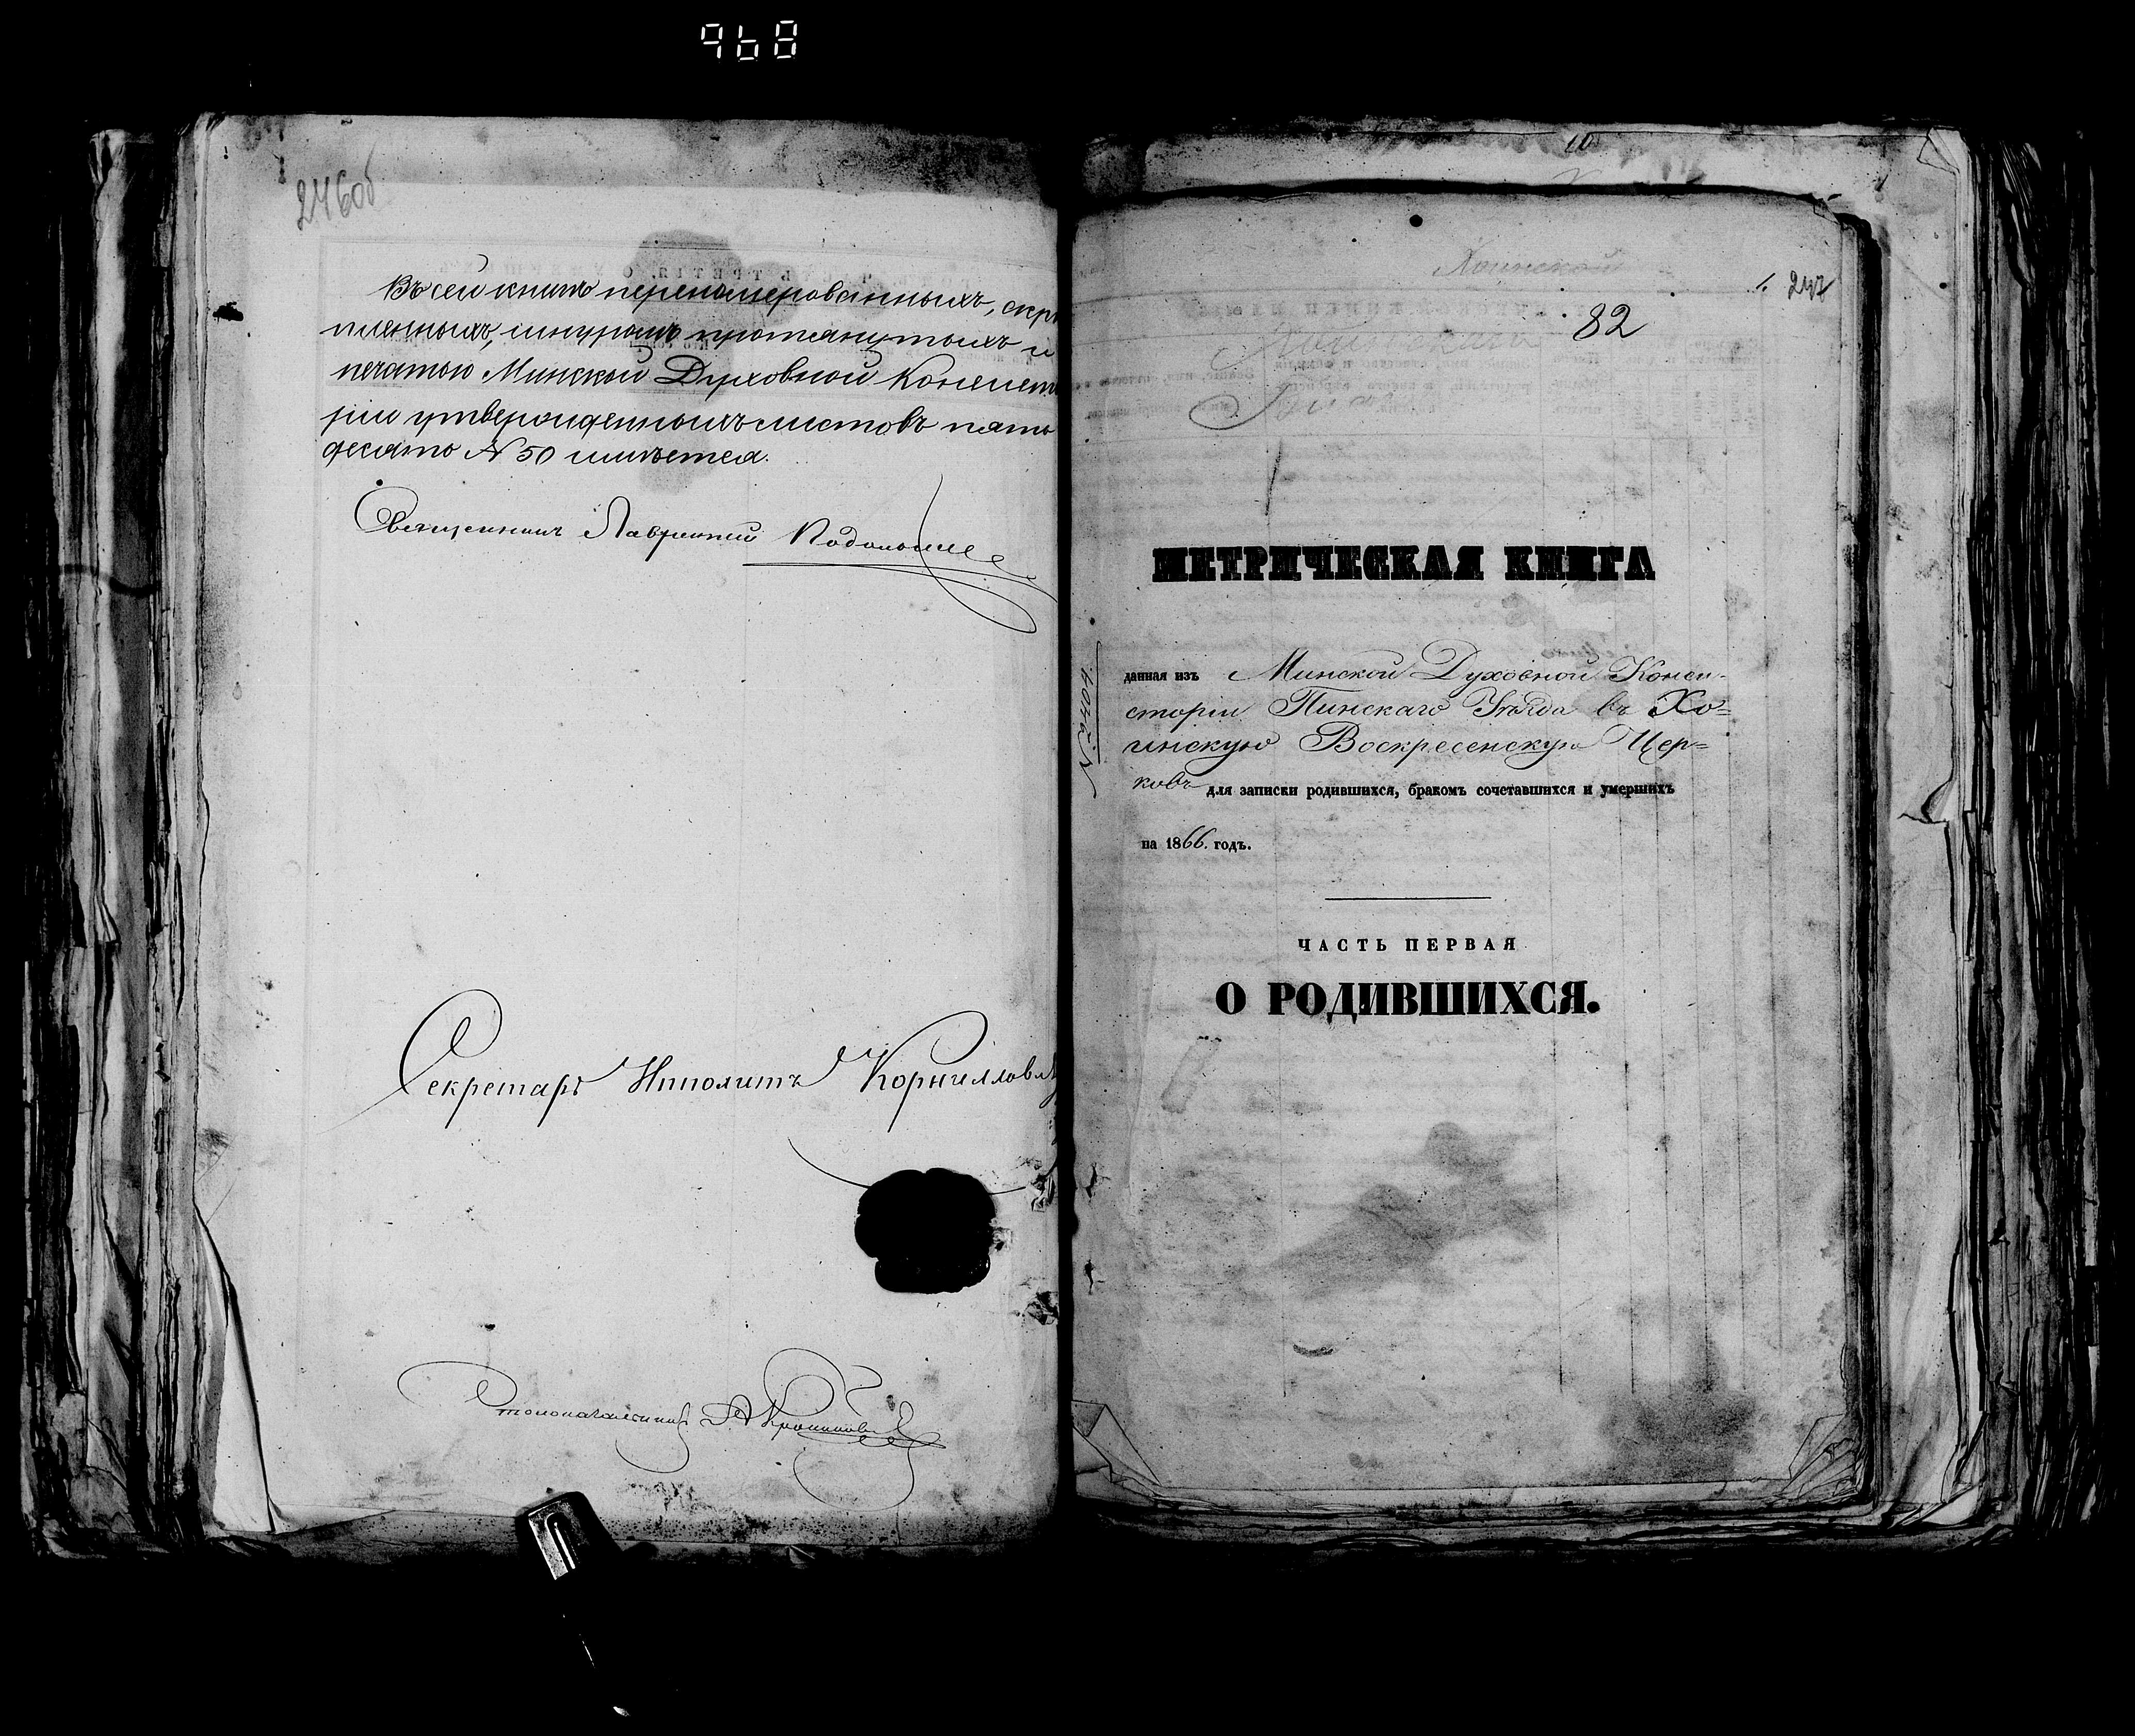 968
246об
Въ сей книгѣ перенумерованныхъ, скрѣ
пленныхъ, шнуромъ протянутыхъ и
печатью Минской Духовной Консисто
ріи утвержденныхъ листовъ пять
десятъ N 50 имѣется.
Священникъ Лаврентій
Секретарь Ипполитъ
Столоначальникъ
Хоинской
1. 247
82
МЕТРИЧЕСКАЯ КНИГА
данная изъ Минской Духовной Конси-
сторіи Пинскаго Уѣзда въ Хо=
инскую Воскресенскую Цер=
ковь для записки родившихся, бракомъ сочетавшихся и умершихъ
на 1866. годъ.
ЧАСТЬ ПЕРВАЯ
О РОДИВШИХСЯ.